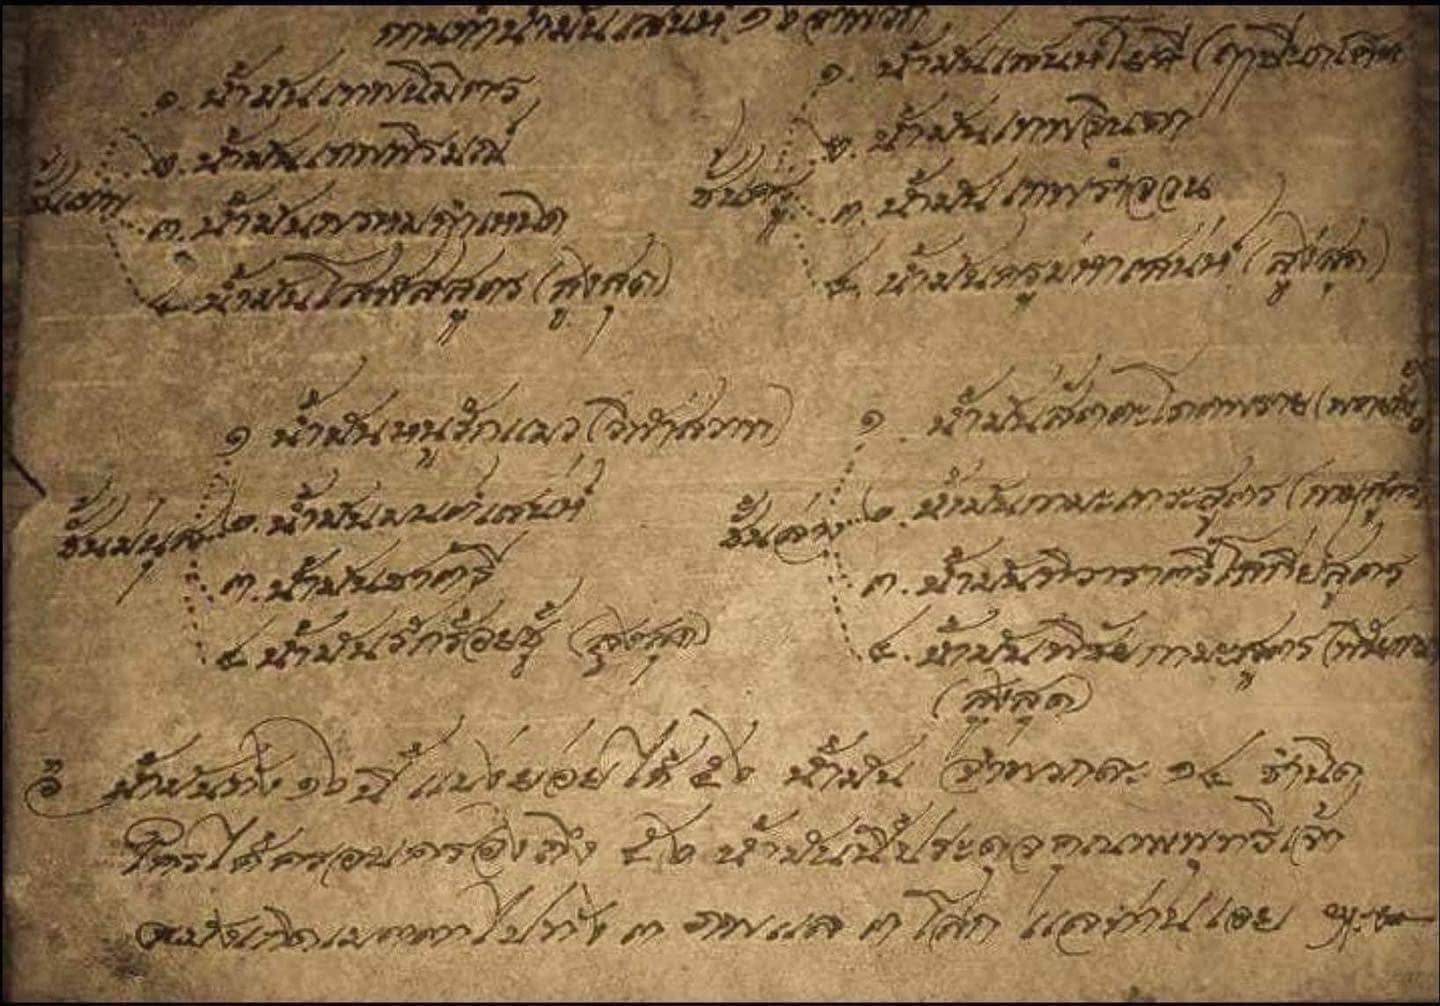 การทำน้ำมันเสน่ห์ ๑๖ จำพวก
ชั้นเทพ
๑. น้ำมันเทพนิมิตร
๒. น้ำมันเทพพิรมณ์
๓. น้ำมันพรหมกำเหนิด
๔. น้ำมันโสฬสสูตร (สูงสุด)
ชั้นครู
๑. น้ำมันเสน่ห์โยคี
๒. น้ำมันเทพจินดา
๓. น้ำมันเทพรำจวน
๔. น้ำมันครูมหาเสน่ห์ (สูงสุด)
ชั้นมนุศ
๑ น้ำมันหนูรักแมว (วิฬาสวาท)
๒. น้ำมันมนต์เสน่ห์
๓. น้ำมันชาตรี
๔ น้ำมันรักร้อยชู้ (สูงสุด)
ชั้นล่าง
๑. น้ำมันสัตตะโกฏพราย
๒. น้ำมันกามะการะสูตร (กามสูตร
๓. น้ำมันทิวาราตรีโลกีย์สูตร
๔. น้ำมันพิชัยกามะสูตร
(สูงสุด)
น้ำมันทั้ง ๑๖ นี้ แบ่งย่อยได้ น้ำมัน จำพวกละ ๑๔ ชนิด
ใครได้ครอบครองถึง น้ำมันนี้ประดุจคุณพระพุทธิเจ้า
เกิดเมตตาไปทั้ง ๓ ภพแล ๓ โลก แลท่านเอย